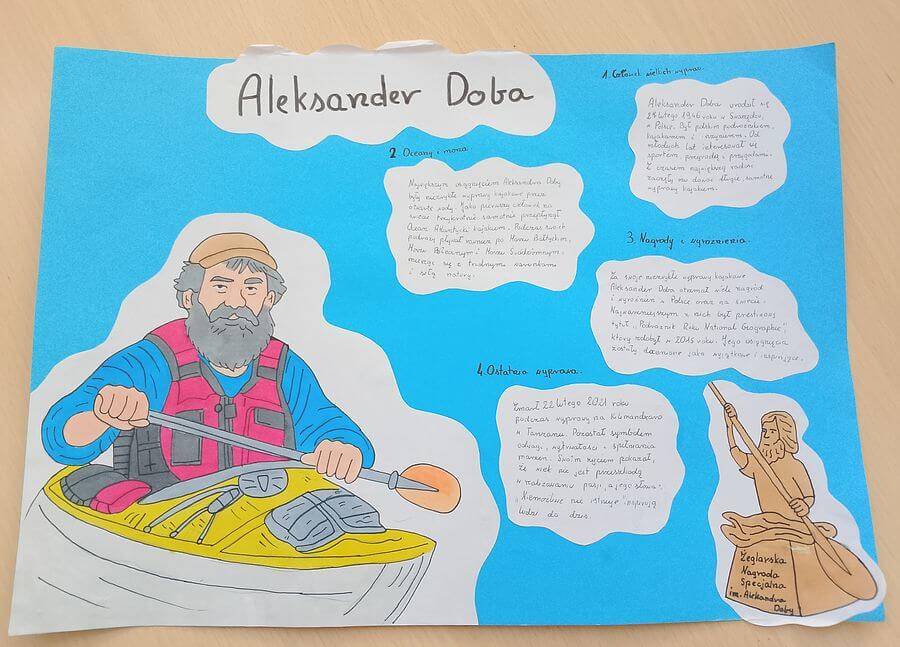 Aleksander Doba
1. Człowiek wielkich wypraw
Aleksander Doba urodził się
9 lutego 1946 roku w Swarzędzu,
w Polsce. Był polskim podróżnikiem,
kajakarzem i inżynierem. Od
młodych lat interesował się
sportem, przyrodą i przygodami.
Z czasem największą radość
zaczęły mu dawać długie, samotne
wyprawy kajakiem.
2. Oceany i morza
Największym osiągnięciem Aleksandra Doby
były niezwykłe wyprawy kajakowe przez
otwarte wody. Jako pierwszy człowiek na
świecie trzykrotnie samotnie przepłynął
Ocean Atlantycki kajakiem. Podczas swoich
podróży pływał również po Morzu Bałtyckim,
Morzu Północnym i Morzu Śródziemnym,
mierząc się z trudnymi warunkami
i siłą natury.
3. Nagrody i wyróżnienia.
Za swoje niezwykłe wyprawy kajakowe
Aleksander Doba otrzymał wiele nagród
i wyróżnień w Polsce oraz na świecie.
Najważniejszym z nich był prestiżowy
tytuł „Podróżnik Roku National Geographic",
który zdobył w 2015 roku. Jego osiągnięcia
zostały docenione jako wyjątkowe i inspirujące.
4. Ostatnia wyprawa.
Zmarł 22 lutego 2021 roku
podczas wyprawy na Kilimandżaro
w Tanzanii. Pozostał symbolem
odwagi, wytrwałości i spełniania
marzeń. Swoim życiem pokazał,
że wiek nie jest przeszkodą
w realizowaniu pasji, a jego słowa:
„Niemożliwe nie istnieje" inspirują
ludzi do dziś.
Żeglarska
Nagroda
Specjalna
im. Aleksandra
Doby